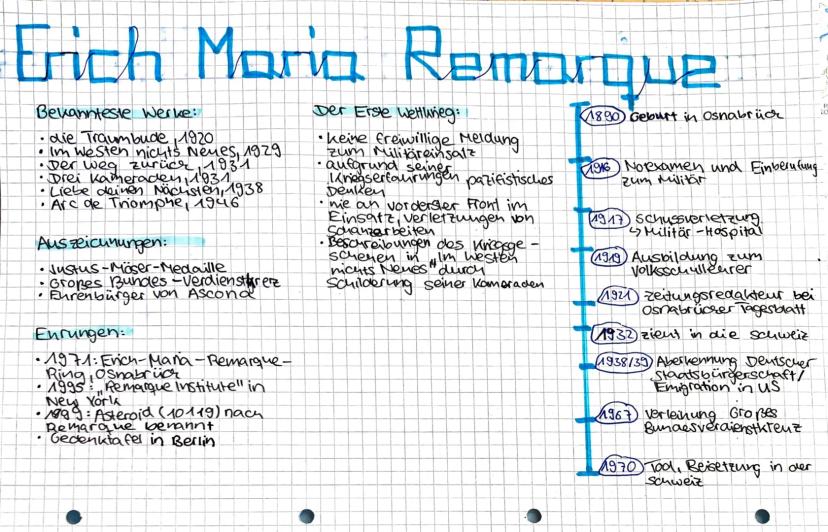 Erich Maria Remarque
Bekannteste Werke:
• die Traumbude, 1920
• Im Westen nichts Neues, 1929
• Der Weg zurück, 1931
• Drei Kameraden, 1931
• Liebe deinen Nächsten, 1938
• Arc de Triomphe, 1946
Auszeichnungen:
• Justus-Möser-Medaille
• Großes Bundes-Verdienstkreuz
• Ehrenbürger von Ascona
Ehrungen:
• 1971: Erich-Maria-Remarque-
Ring, Osnabrück
• 1995: "Remarque Institute" in
New York
• 1999: Asteroid (10119) nach
Remarque benannt
• Gedenktafel in Berlin
Der Erste Weltkrieg:
• keine freiwillige Meldung
zum Militäreinsatz
• aufgrund seiner
Kriegserfahrungen pazifistisches
Denken
• nie an vorderster Front im
Einsatz, Verletzungen von
Schanzarbeiten
• Beschreibungen des Kriegsge-
schehen in "Im Westen
nichts Neues" durch
Schilderung seiner Kameraden
1890 Geburt in Osnabrück
1916 Notexamen und Einberufung
zum Militär
1917 Schussverletzung
↳ Militär-Hospital
1919 Ausbildung zum
Volksschullehrer
1921 Zeitungsredakteur bei
Osnabrücker Tagesblatt
1932 zieht in die Schweiz
1938/39 Aberkennung Deutscher
Staatsbürgerschaft/
Emigration in US
1967 Verleihung Großes
Bundesverdienstkreuz
1970 Tod, Beisetzung in der
Schweiz